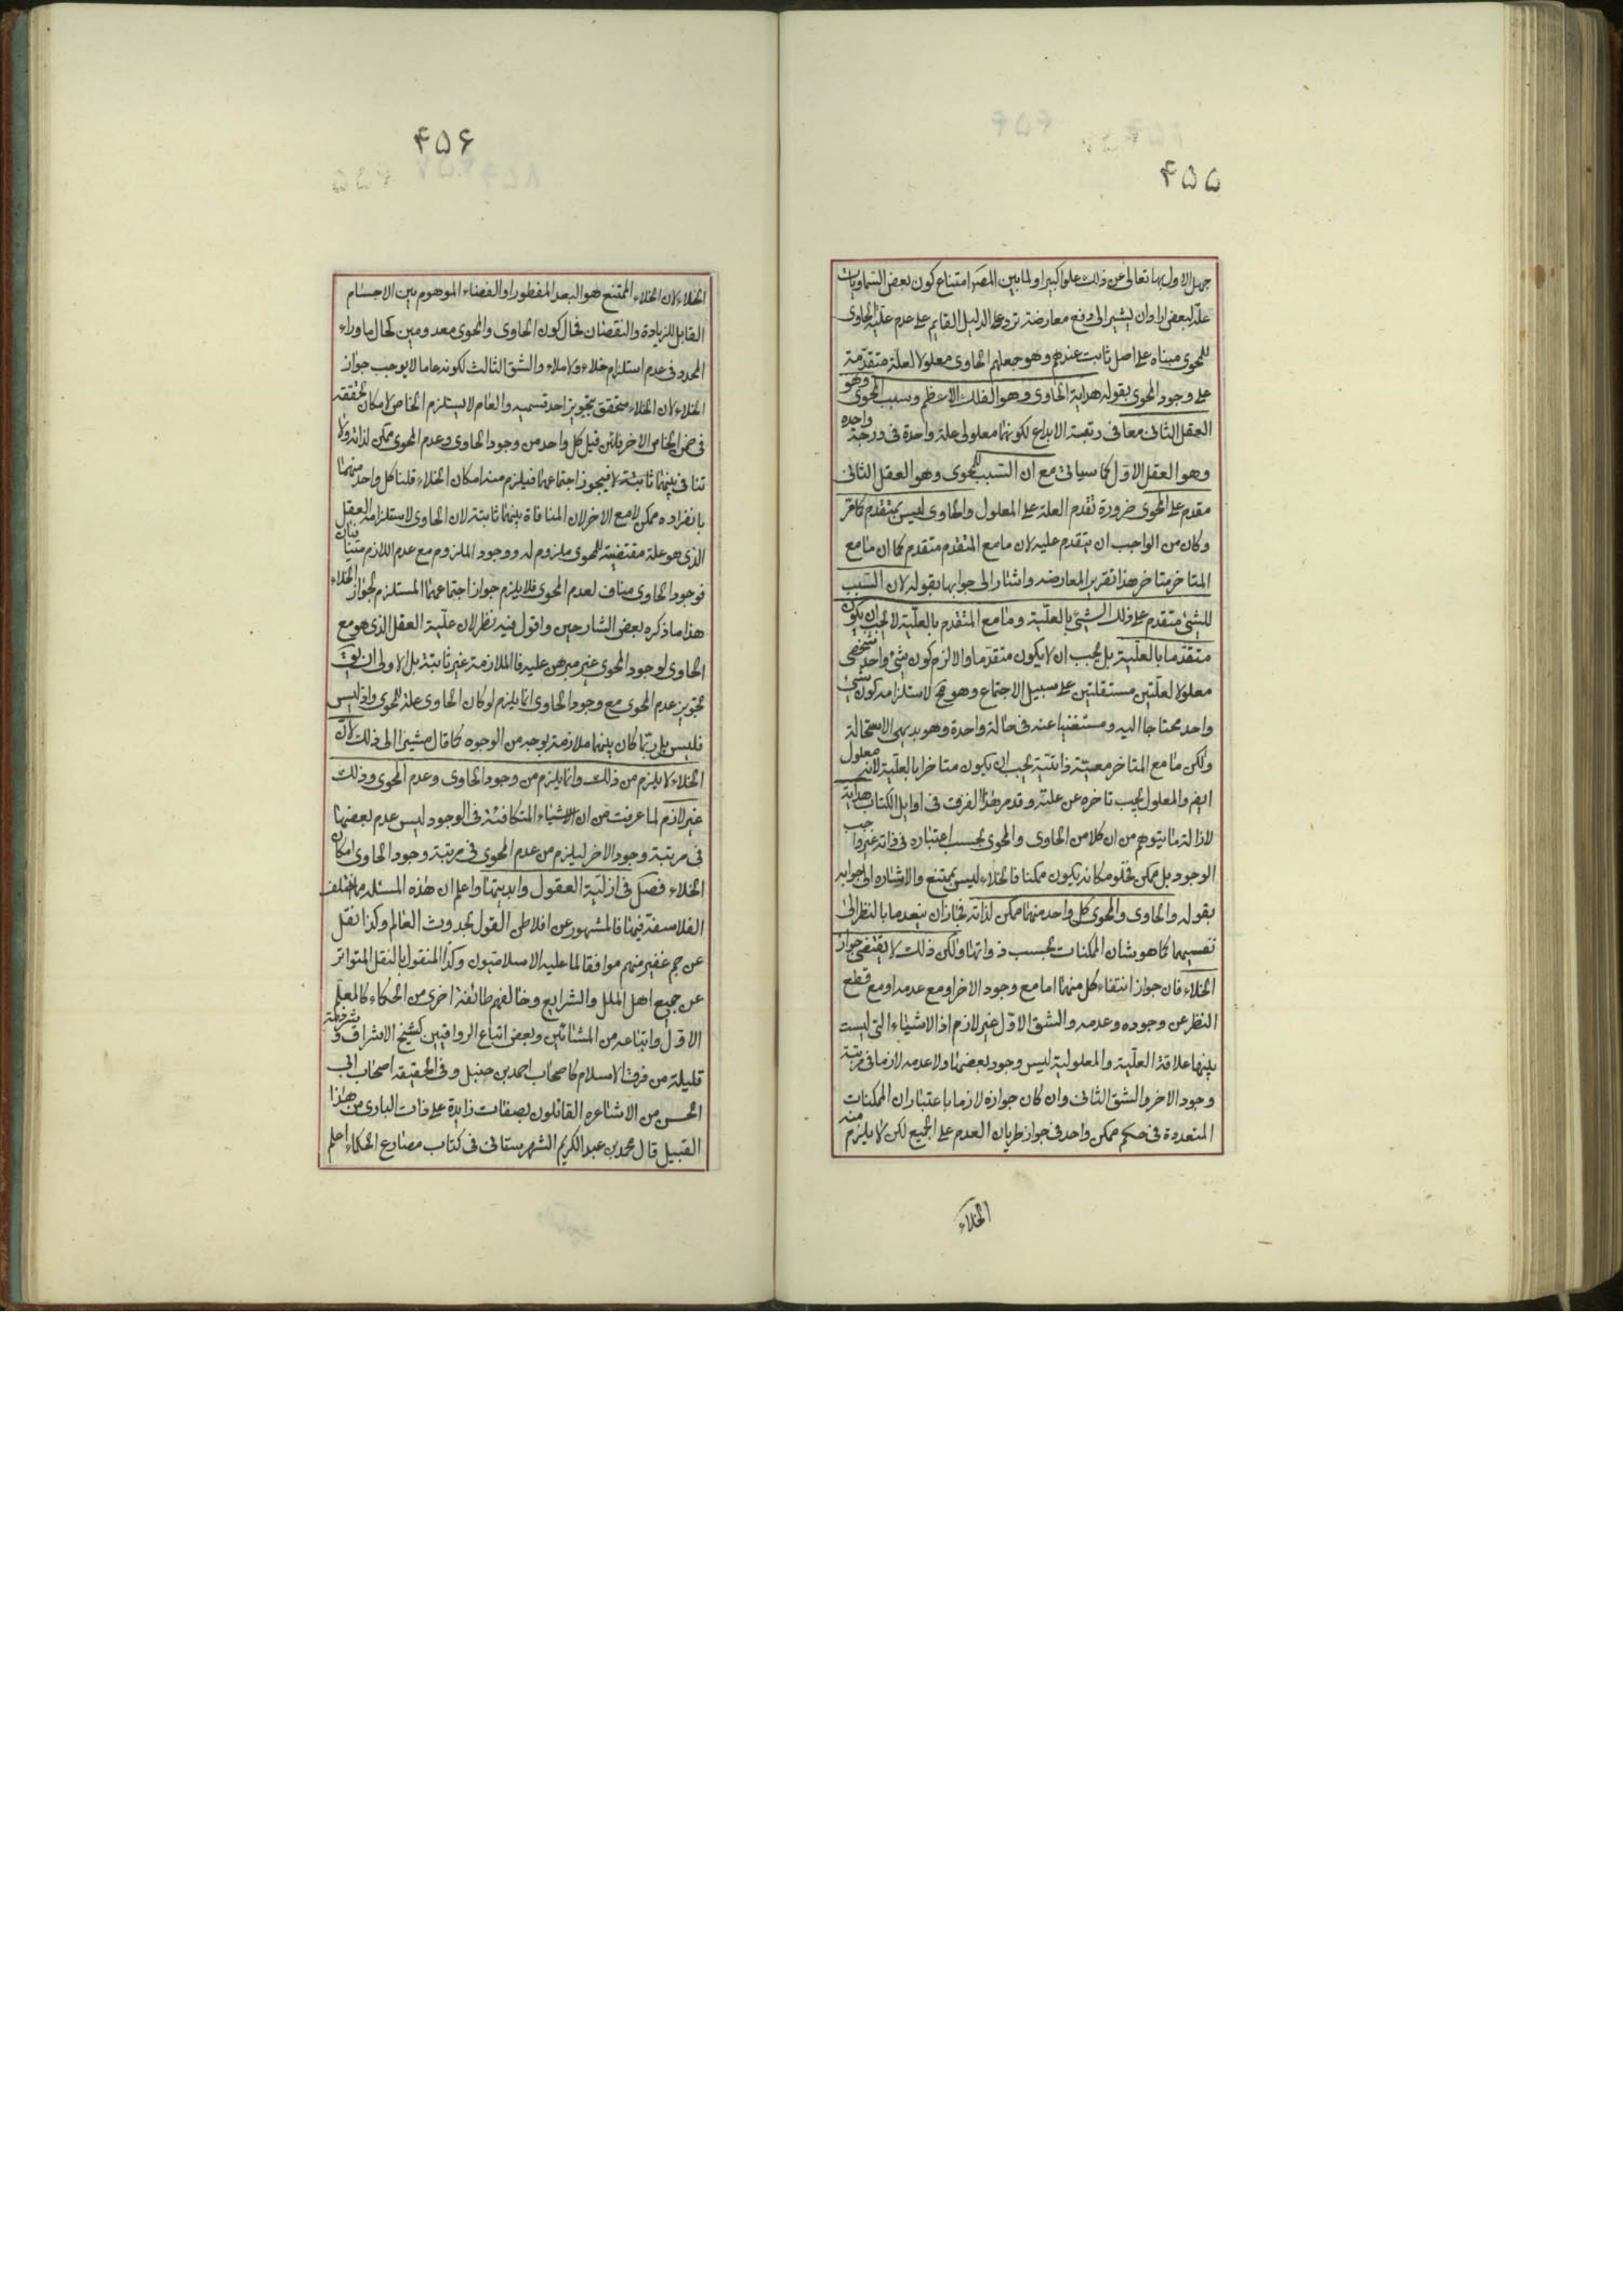 ۴۵۵
جهل الاول بها تعالى عن ذلك علوا كبيرا ولما بين المصـ امتناع كون بعض السماويات
علة لبعض اراد ان يشير الى دفع معارضة ترد على الدليل القايم على عدم علية الحاوى
للمحوى مبناه على اصل ثابت عندهم وهو جعلهم الحاوى معلولا لعلة متقدمة
على وجود المحوى بقوله هداية الحاوى وهو الفلك الاعظم وسبب المحوى وهو
العقل الثانى معا فى رتبة الابداع لكونهما معلولى علة واحدة فى درجة واحدة
وهو العقل الاول كما سياتى مع ان السبب للمحوى وهو العقل الثانى
مقدم على المحوى ضرورة تقدم العلة على المعلول والحاوى ليس بمتقدم كما مر
وكان من الواجب ان يتقدم عليه لان ما مع المتقدم متقدم كما ان ما مع
المتاخر متاخر هذا تقرير المعارضه واشار الى جوابها بقوله لان السبب
للشئ متقدم على ذلك الشئ بالعلية وما مع المتقدم بالعلية لا يجب ان يكون
متقدما بالعلية بل يجب ان لا يكون متقدما والا لزم كون شئ واحد شخصى
معلولا لعلتين مستقلتين على سبيل الاجتماع وهو مح لاستلزامه كون شئ
واحد محتاجا اليه ومستغنيا عنه فى حالة واحدة وهو بديهى الاستحالة
ولكن ما مع المتاخر معية ذاتية يجب ان يكون متاخرا بالعلية لانه معلول
ايض والمعلول يجب تاخره عن علته وقد مر هذا الفرق فى اوايل الكتاب هداية
لازالة ما يتوهم من ان كلا من الحاوى والمحوى بحسب اعتباره فى ذاته غير واجب
الوجود بل ممكن فخلو مكانه يكون ممكنا فالخلاء ليس بممتنع والاشاره الى جوابه
بقوله والحاوى والمحوى كل واحد منهما ممكن لذاته فجاز ان ينعدما بالنظر الى
نفسيهما كما هو شان الممكنات بحسب ذواتها ولكن ذلك لا يقتضى جواز
الخلاء فان جواز انتفاء كل منهما اما مع وجود الاخر او مع عدمه او مع قطع
النظر عن وجوده وعدمه والشق الاول غير لازم اذ الاشياء التى ليست
بينها علاقة العلية والمعلولية ليس وجود بعضها ولا عدمه لازما فى مرتبة
وجود الاخر والشق الثانى وان كان جوازه لازما باعتبار ان الممكنات
المتعددة فى حكم ممكن واحد فى جواز طريان العدم على الجميع لكن لا يلزم منه
الخلاء
۴۵۶
الخلاء لان الخلاء الممتنع هو البعد المفطور او الفضاء الموهوم بين الاجسام
القابل للزيادة والنقصان فحال كون الحاوى والمحوى معدومين كحال ما وراء
المحدد فى عدم استلزام خلاء ولا ملاء والشق الثالث لكونه عاما لا يوجب جواز
الخلاء لان الخلاء متحقق بتجويز احد قسميه والعام لا يستلزم الخاص لامكان تحققه
فى ضمن الخاص الاخر فان قيل كل واحد من وجود الحاوى وعدم المحوى ممكن لذاته ولا
تنافى بينهما ثابتة فيجوز اجتماعهما فيلزم منه امكان الخلاء قلنا كل واحد منهما
بانفراده ممكن لا مع الاخر لان المنافاة بينهما ثابتة لان الحاوى لاستلزامه العقل
الذى هو علة مقتضية للمحوى ملزوم له ووجود الملزوم مع عدم اللازم متنافيان
فوجود الحاوى مناف لعدم المحوى فلا يلزم جواز اجتماعهما المستلزم لجواز الخلاء
هذا ما ذكره بعض الشارحين واقول فيه نظر لان علية العقل الذى هو مع
الحاوى لوجود المحوى غير مبرهن عليه فالملازمة غير ثابتة بل الاولى ان يق
تجويز عدم المحوى مع وجود الحاوى انما يلزم لو كان الحاوى علة للمحوى واذ ليس
فليس بل ربما كان بينهما ملازمة بوجه من الوجوه كما قال مشيرا الى ذلك لان
الخلاء لا يلزم من ذلك وانما يلزم من وجود الحاوى وعدم المحوى وذلك
غير لازم لما عرفت من ان الاشياء المتكافئة فى الوجود ليس عدم بعضها
فى مرتبة وجود الاخر ليلزم من عدم المحوى فى مرتبة وجود الحاوى امكان
الخلاء فصل فى ازلية العقول وابديتها واعلم ان هذه المسئلة مما اختلف
الفلاسفة فيها فالمشهور عن افلاطن القول بحدوث العالم وكذا نقل
عن جم غفير منهم موافقا لما عليه الاسلاميون وكذا المنقول بالنقل المتواتر
عن جميع اهل الملل والشرايع وخالفهم طائفة اخرى من الحكماء كالمعلم
الاول واتباعه من المشائين وبعض اتباع الرواقيين كشيخ الاشراق و شرذمة
قليلة من فرق الاسلام كاصحاب احمد بن حنبل وفى الحقيقه اصحاب ابى
الحسن من الاشاعره القائلون بصفات زايدة على ذات البارى من هذا
القبيل قال محمد بن عبد الكريم الشهرستانى فى كتاب مصارع الحكماء اعلم